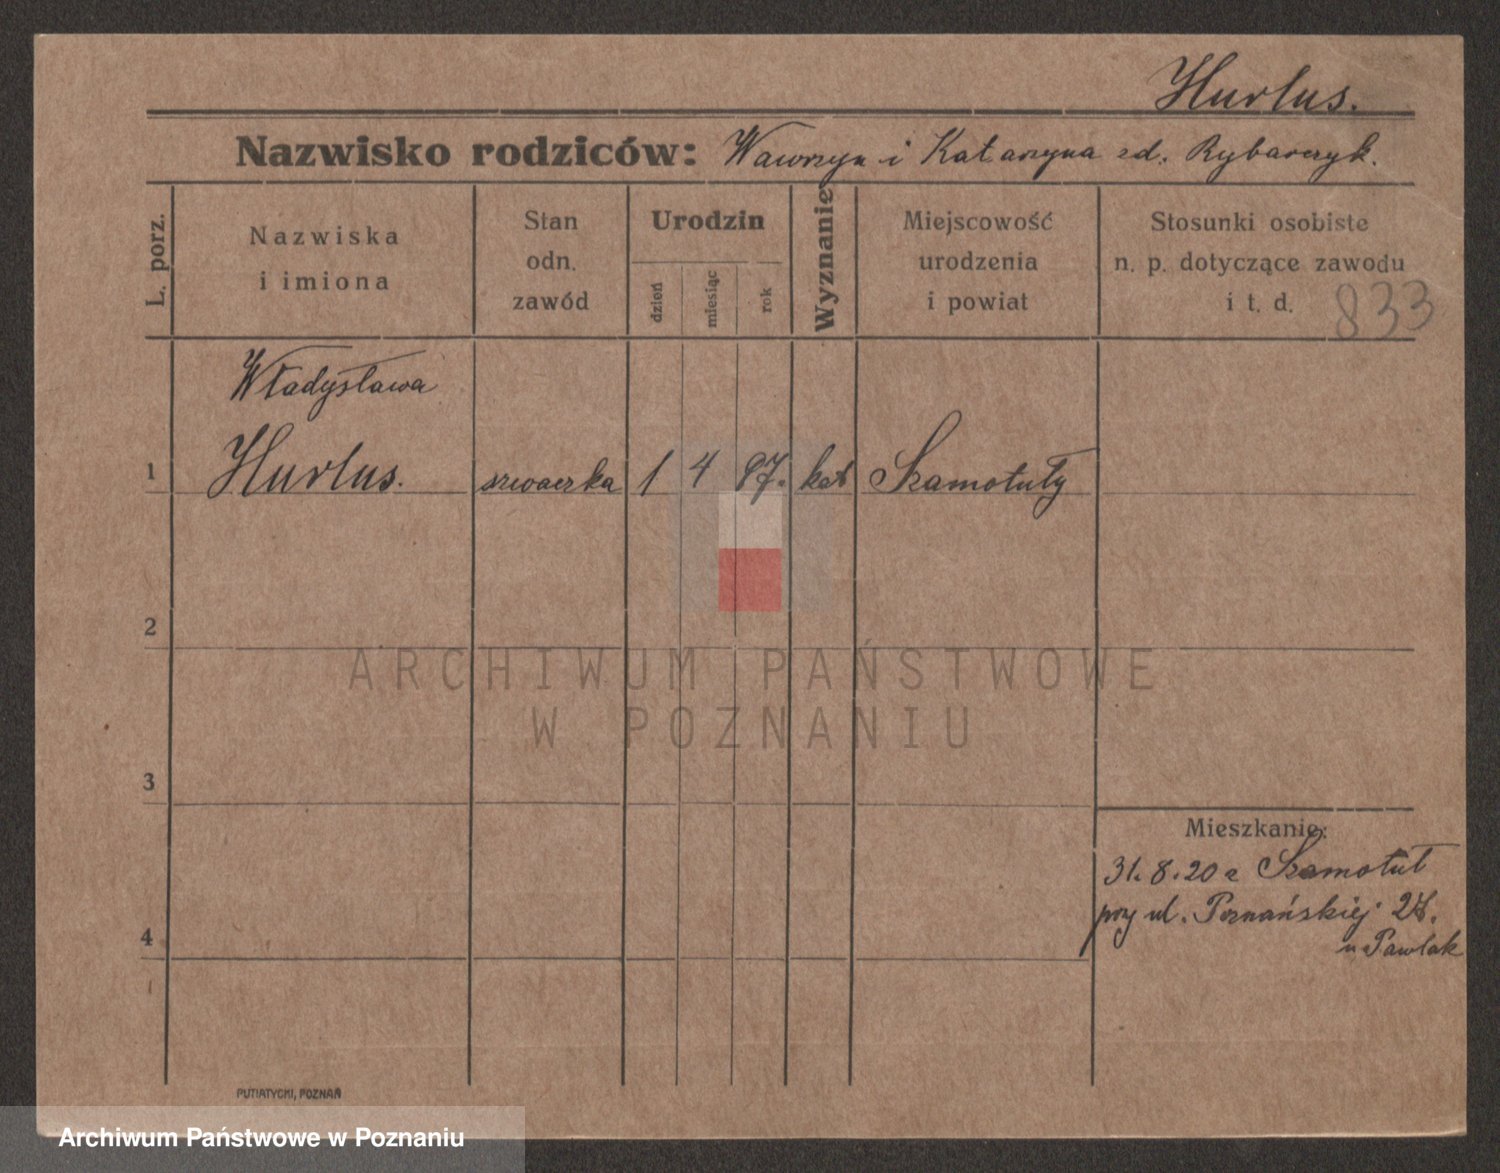 Hurlus.
Nazwisko rodziców: Wawrzyn i Katarzyna zd. Rybarczyk.
L. porz.
Nazwiska
i imiona
Stan
odn.
zawód
Urodzin
dzień
miesiąc
rok
Wyznanie
Miejscowość
urodzenia
i powiat
Stosunki osobiste
n. p. dotyczące zawodu
i t. d.
833
Władysława
1 Hurlus. szwaczka 1 4 97. kat Szamotuły
2
ARCHIWUM PAŃSTWOWE
W POZNANIU
3
Mieszkanie:
31. 8. 20 z Szamotuł
przy ul. Poznańskiej 24.
u Pawlak
4
PUTIATYCKI, POZNAŃ
Archiwum Państwowe w Poznaniu